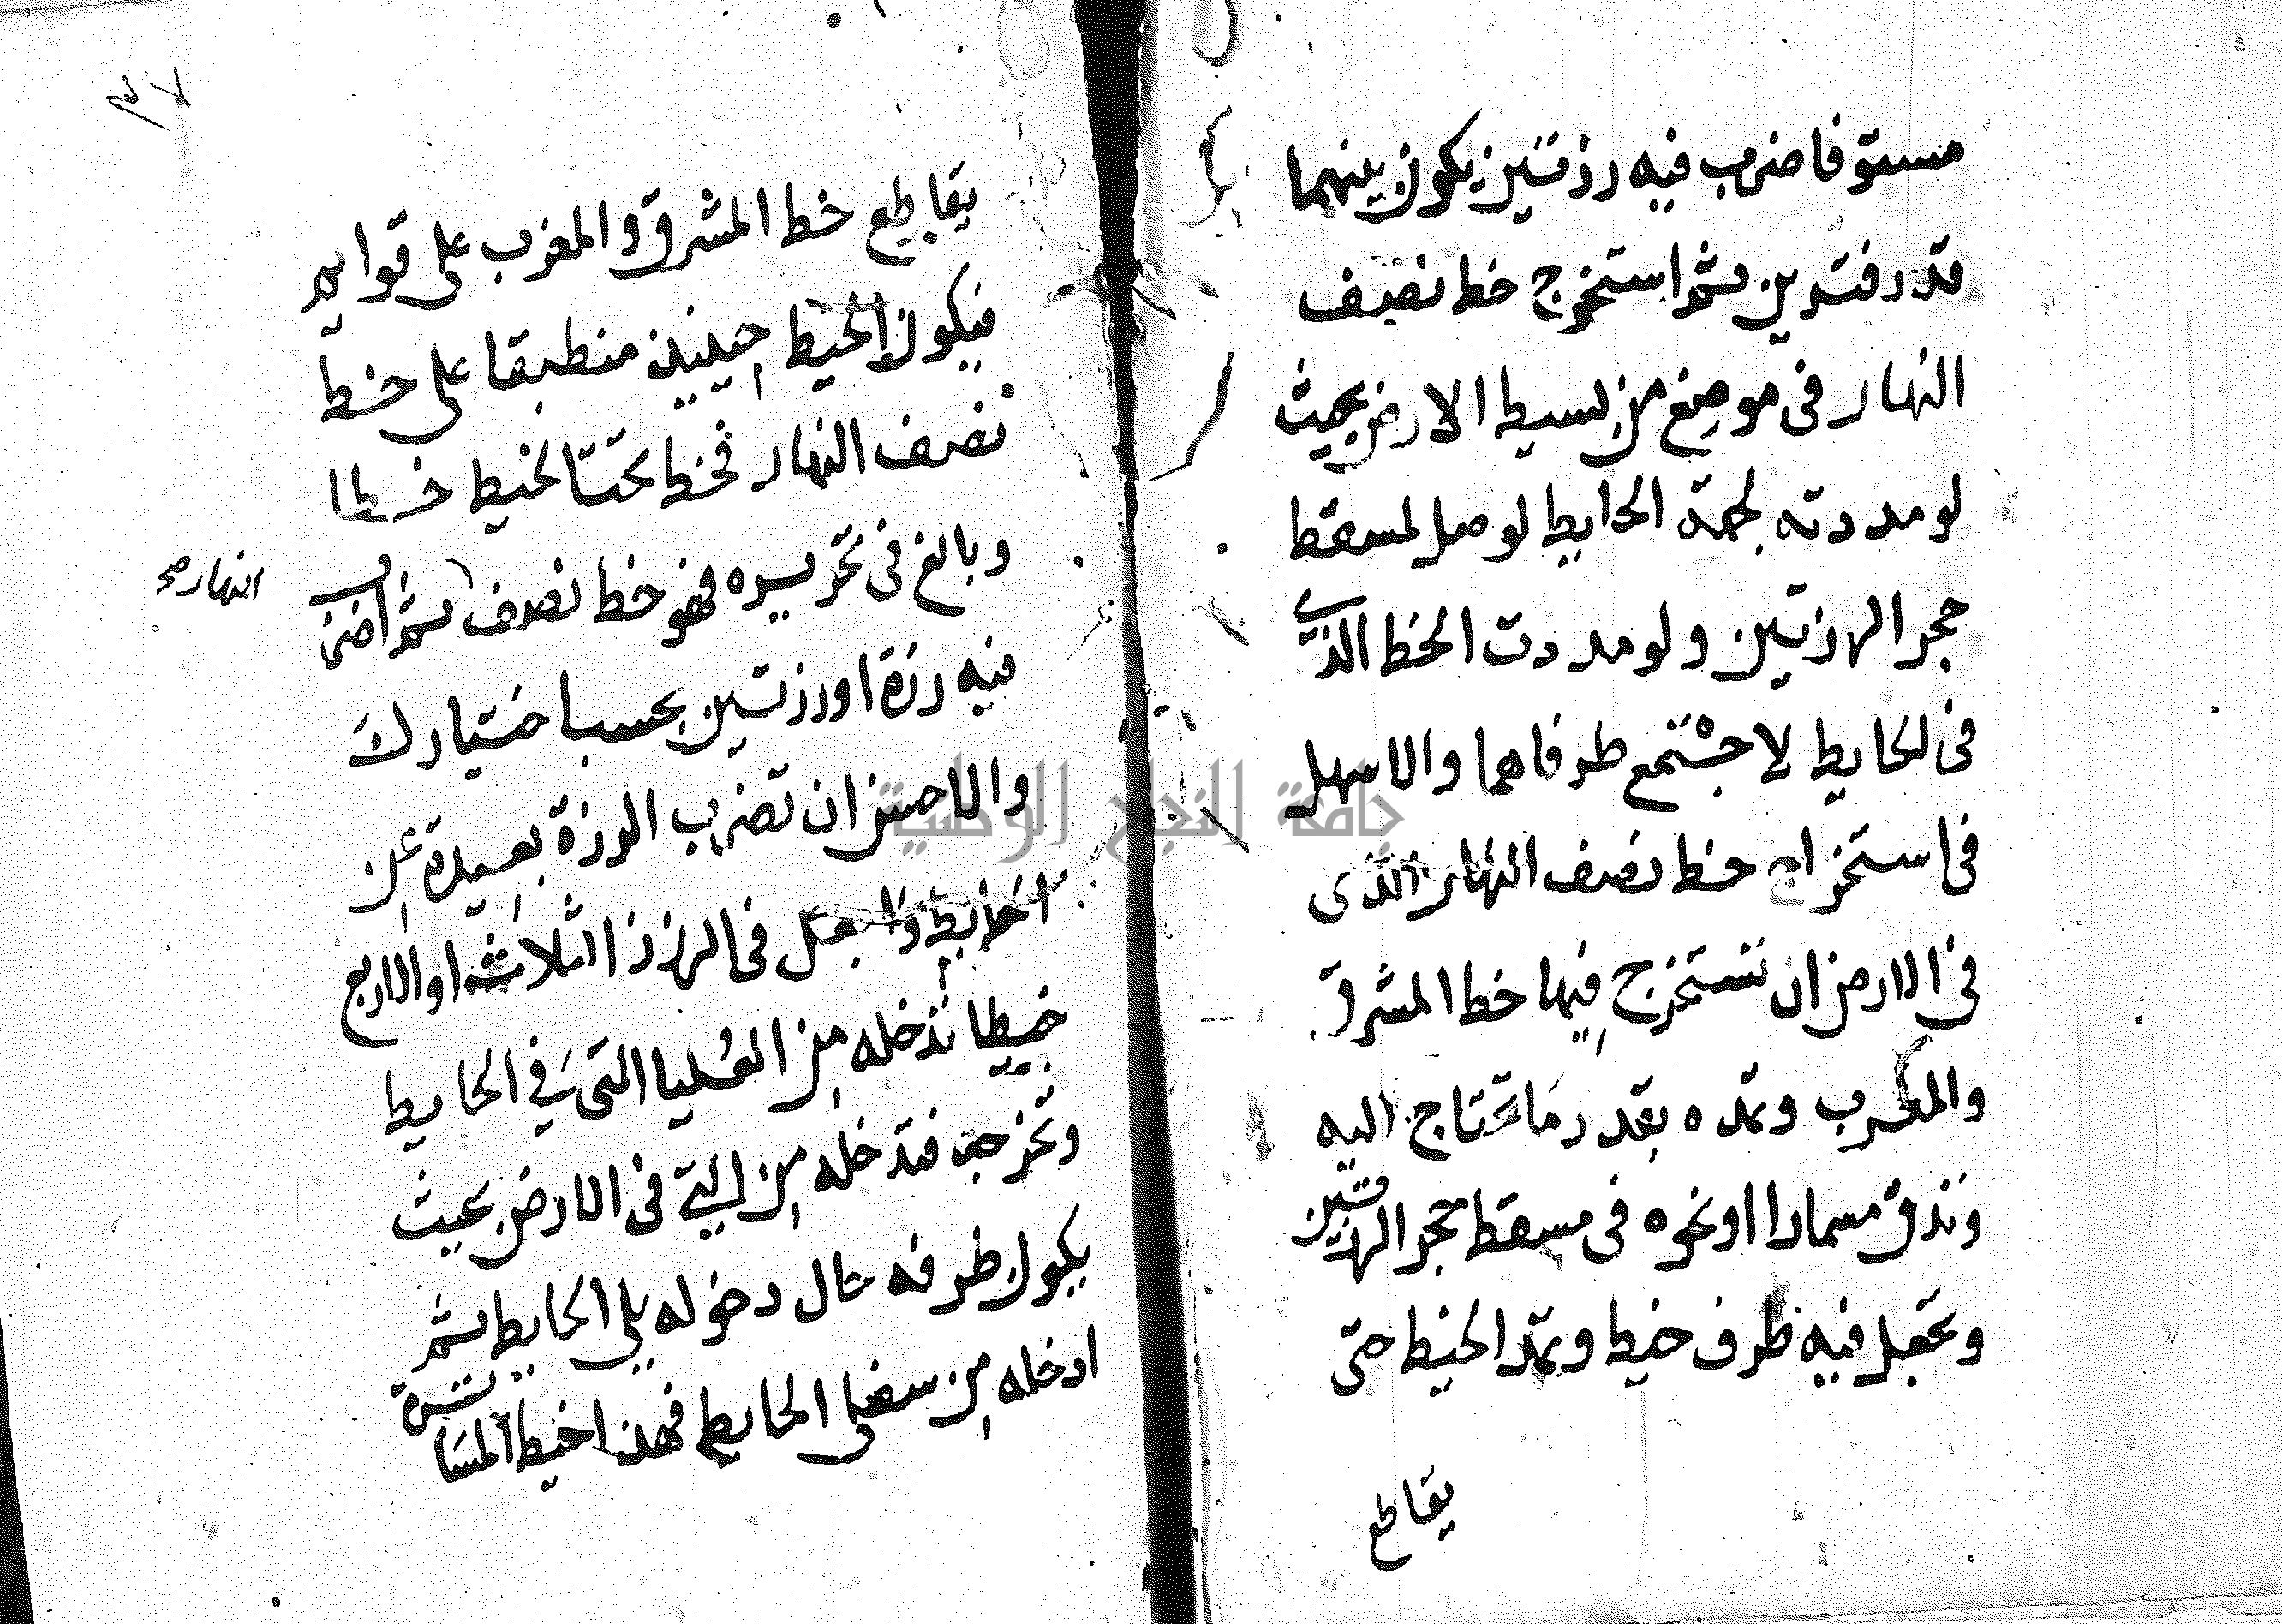 مستو فاضرب فيه رزتين يكون بينهما
قدر فترين ثم استخرج خط نصف
النهار في موضع من بسيط الارض بحيث
لو مددته لجهة الحايط لوصل لمسقط
حجر الرزتين ولو مددت الخط الذي
في الحايط لاجتمع طرفاهما والاسهل
في استخراج خط نصف النهار الذي
في الارض ان تستخرج فيها خط المشرق
والمغرب وتمده بقدر ما تحتاج اليه
وتدق مسمارا او نحوه في مسقط حجر الرزتين
وتجعل فيه طرف خيط وتمد الخيط حتى
يقاطع
٣٧
يقاطع خط المشرق والمغرب على قوايم
فيكون الخيط حينيذ منطبقا على خط
نصف النهار فخط تحت الخيط خطا
وبالغ في تحريره فهو خط نصف ثم اضرب
النهار صح
فيه رزة او رزتين بحسب اختيارك
والاحسن ان تضرب الرزة بعيدة عن
الحايط واجعل في الرزز الثلاثة او الاربع
خيطا تدخله من العليا التي في الحايط
وتخرجه فتدخله من التي في الارض بحيث
يكون طرفه حال دخوله يلي الحايط ثم
ادخله من سفلى الحايط فهذا خيط المساترة
جامعة النجاح الوطنية